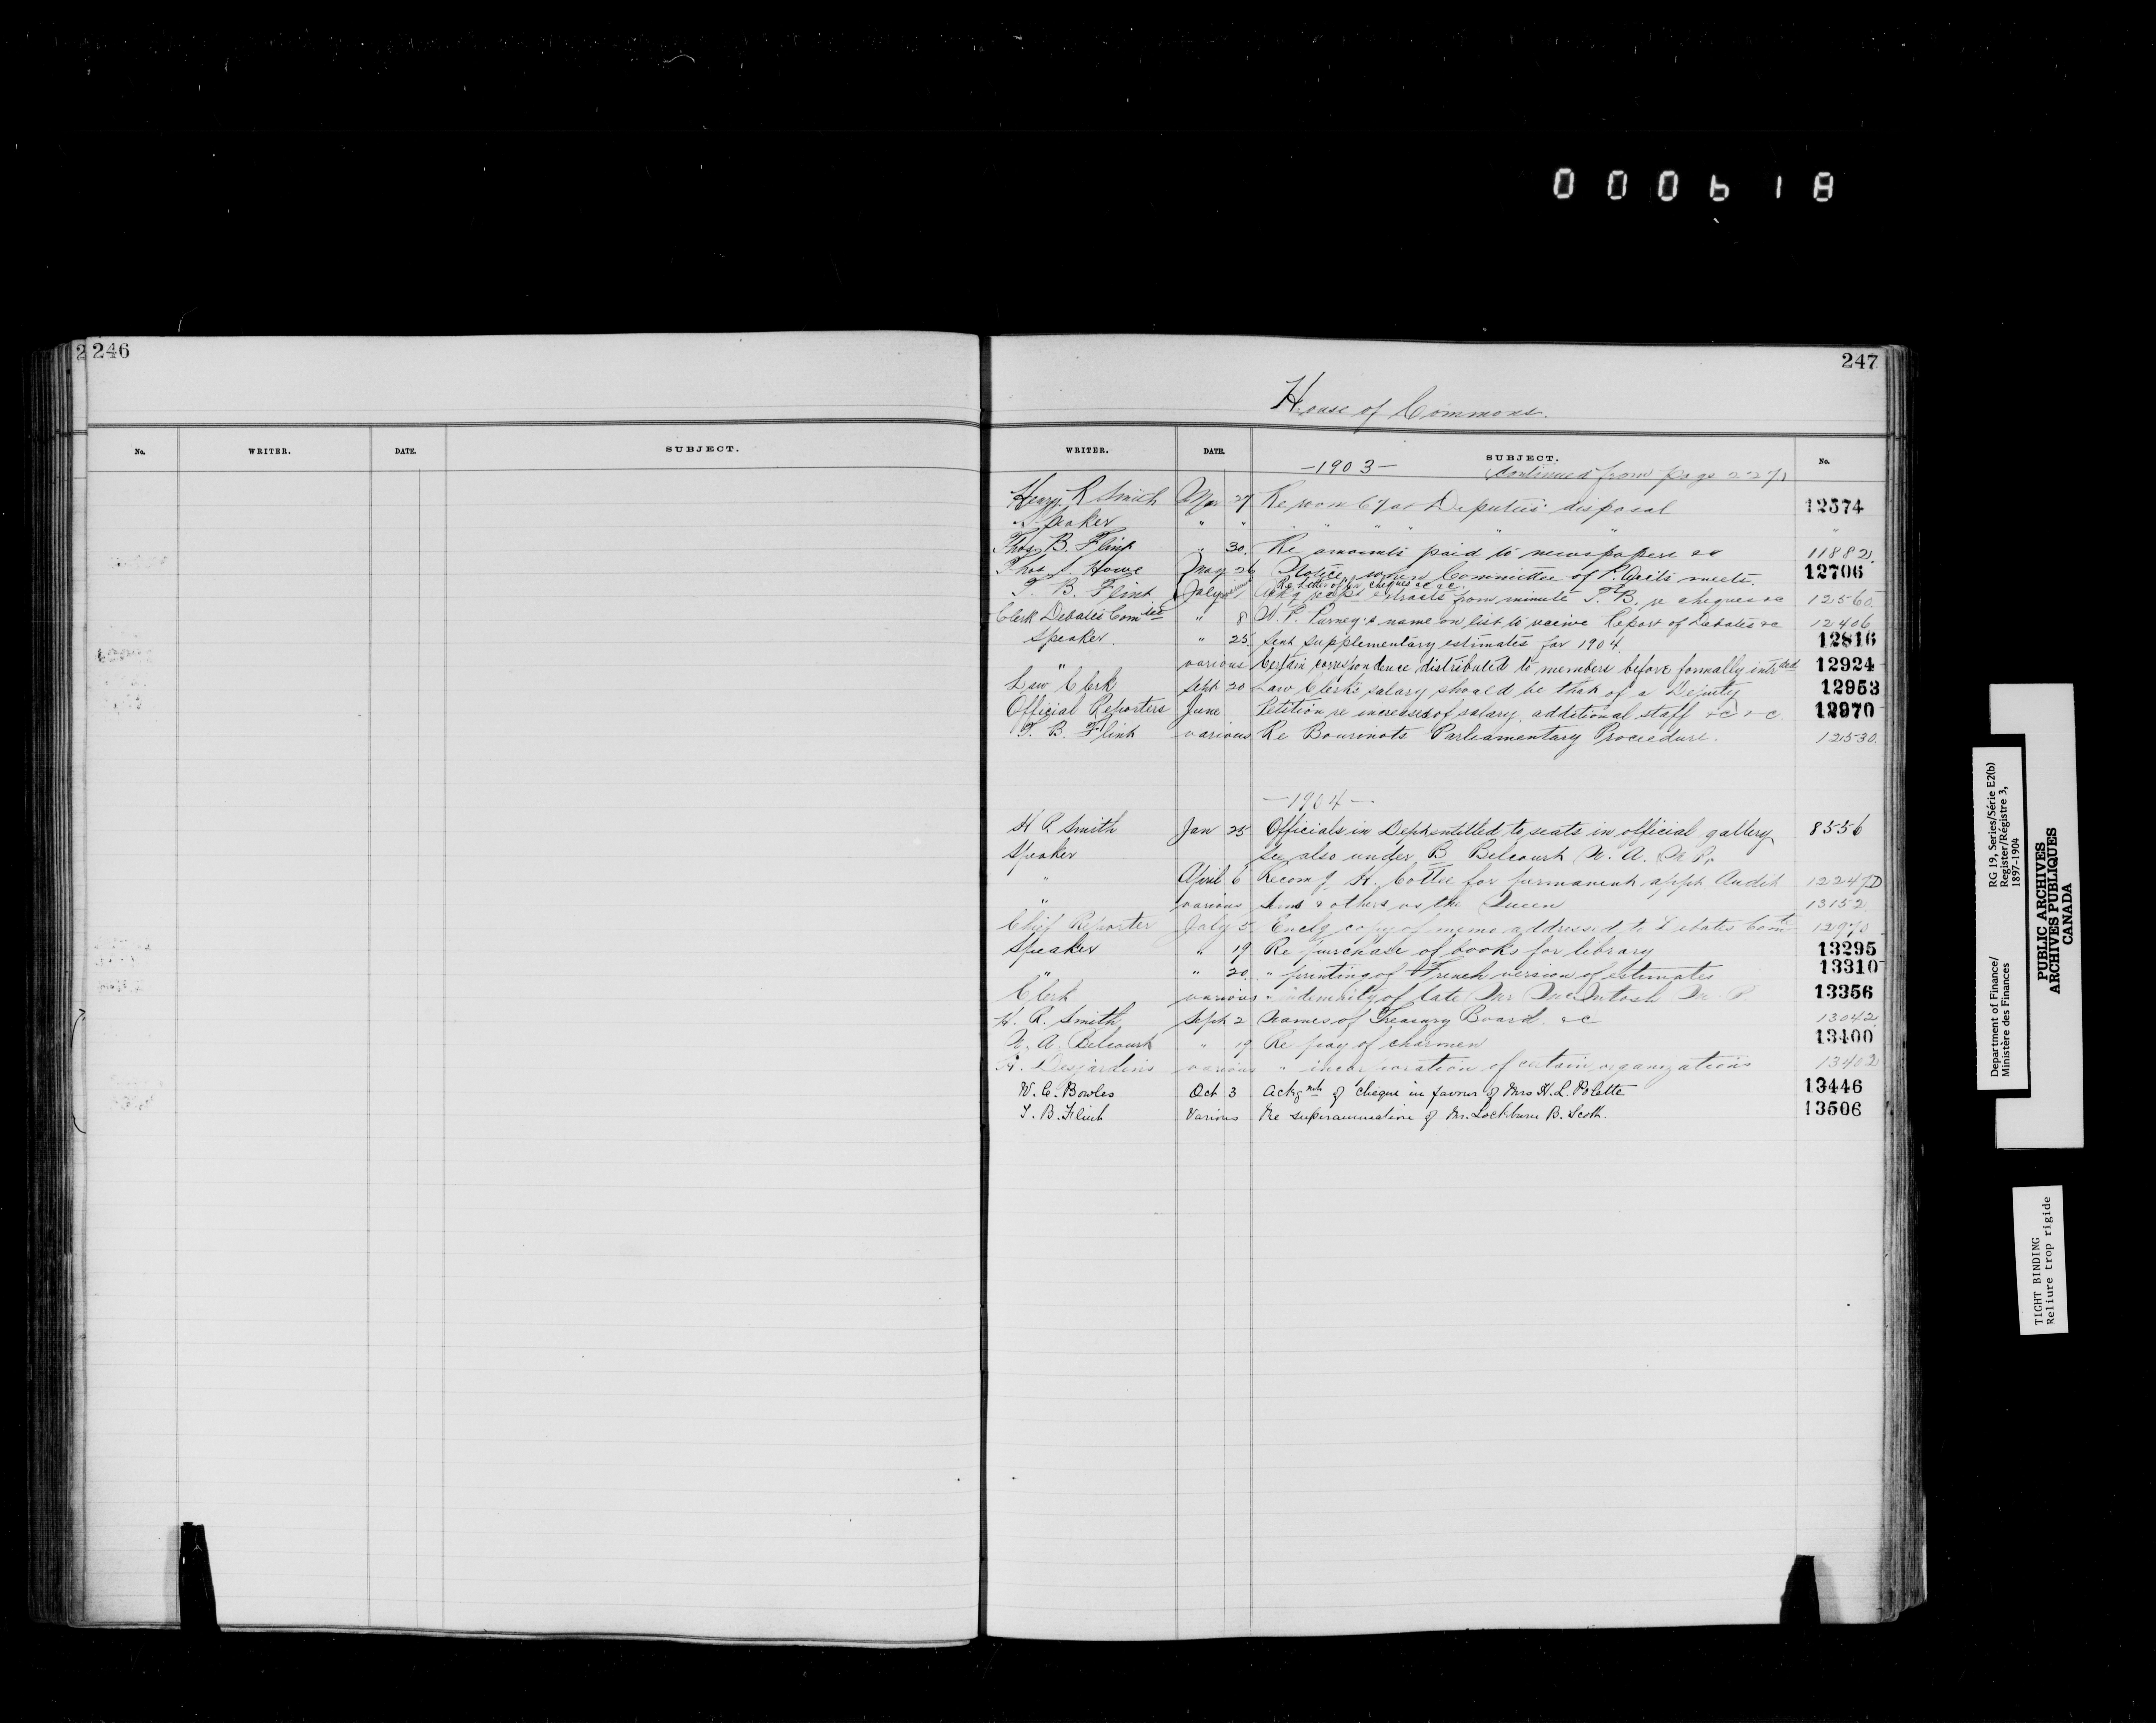 000618
2 246
247
House of Commons.
No. WRITER. DATE. SUBJECT.
WRITER. DATE. SUBJECT. No.
—1903— Continued from page 227
Henry R Smith Apr 27 Re room 67 at Deputies' disposal 12574
Speaker " " " " " " "
Thos B. Flint " 30. Re amounts paid to newspapers &c 11882
Thos Howe May 26 Notice when Committee of P. Accts meets. 12706
Re letter of cr cheques &c &c.
T. B. Flint July 1 Ackg recpt extracts from minute T. B. re cheques &c 12560.
Clerk Debates Comtee " 8 W. P. Purney's name on list to receive Report of Debates &c 12406
Speaker. " 25. Sent supplementary estimates for 1904. 12816
" various Certain correspondence distributed to members before formally intrded 12924
Law Clerk Sept 20 Law Clerk's salary should be that of a Deputy 12953
Official Reporters June Petition re increased of salary, additional staff &c &c. 12970
T. B. Flint various Re Bourinots Parliamentary Proceedure. 12530.
—1904—
H R. Smith Jan 25 Officials in Dept entitled to seats in official gallery 8556
Speaker See also under B Belcourt N. A. M. P.
" April 6 Recomg H. Cottee for permanent appt Audit 12247D
" various Sims & others vs the Queen 13152
Chief Reporter July 5 Enclg copy of memo addressed to Debates Comte 12970
Speaker " 19 Re purchase of books for library 13295
" " 20. " printing of French version of estimates 13310
Clerk various " indemnity of late Mr McIntosh M. P. 13356
H. R. Smith Sept 2 Names of Treasury Board. &c 13042
N. A. Belcourt " 19 Re pay of charmen 13400
Desjardins various " incorporation of certain organizations 13402
W. C. Bowles Oct 3 Ackgmt of cheque in favour of Mrs H. L. Polette 13446
T. B. Flint Various Re superannuation of Mr. Lochburn B. Scott. 13506
Department of Finance/ RG 19, Series/Série E2(b)
Ministère des Finances Register/Régistre 3,
1897-1904
PUBLIC ARCHIVES
ARCHIVES PUBLIQUES
CANADA
TIGHT BINDING
Reliure trop rigide